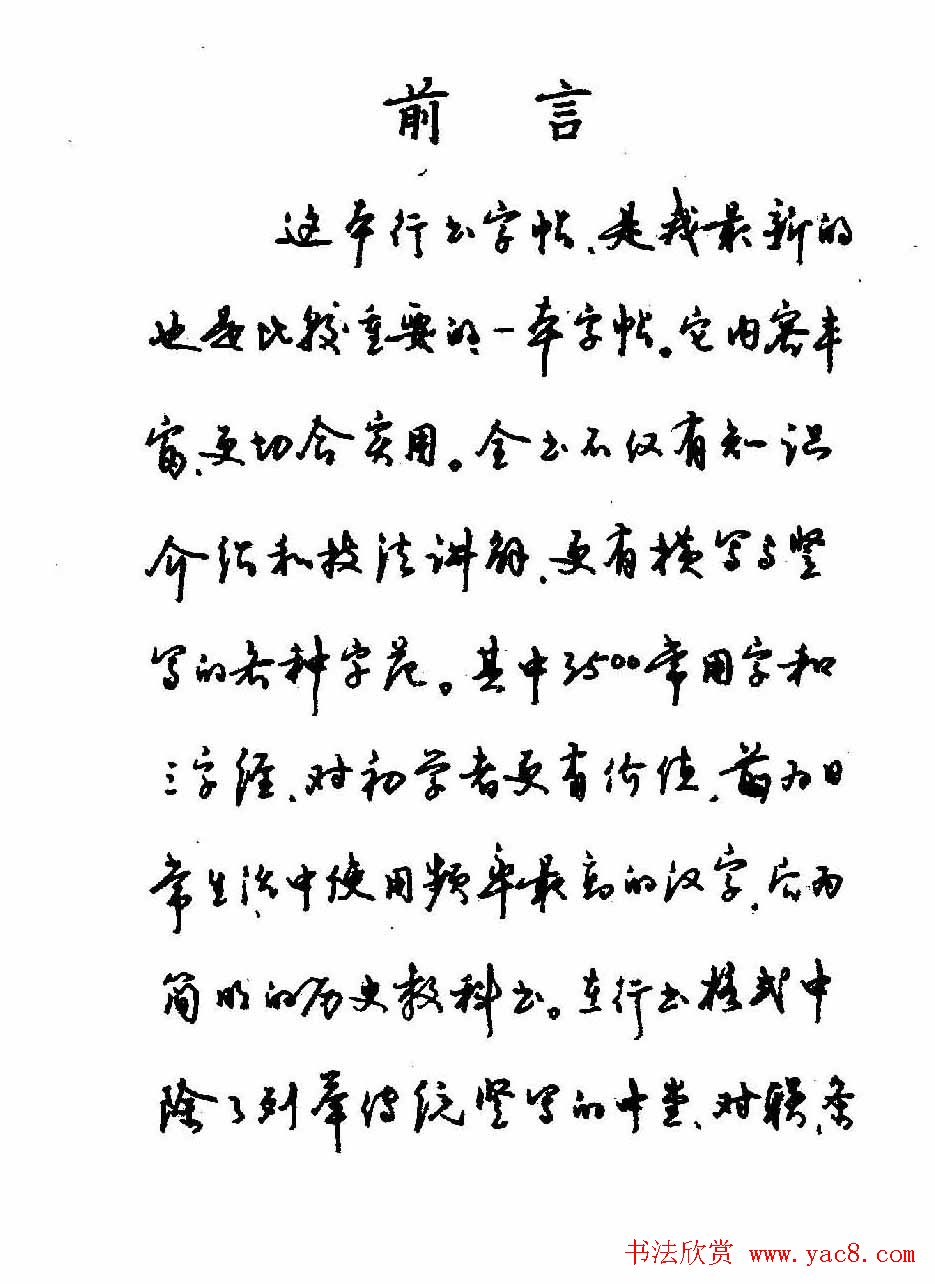 前言
这本行书字帖、是我最新的
也是比较重要的一本字帖。它内容丰
富、更切合实用。全书不仅有知识
介绍和技法讲解、更有横写与竖
写的各种字范。其中3500常用字和
三字经、对初学者更有价值,前为日
常生活中使用频率最高的汉字,后为
简明的历史教科书。在行书格式中
除了列举传统竖写的中堂、对联、条
书法欣赏 www.yac8.com